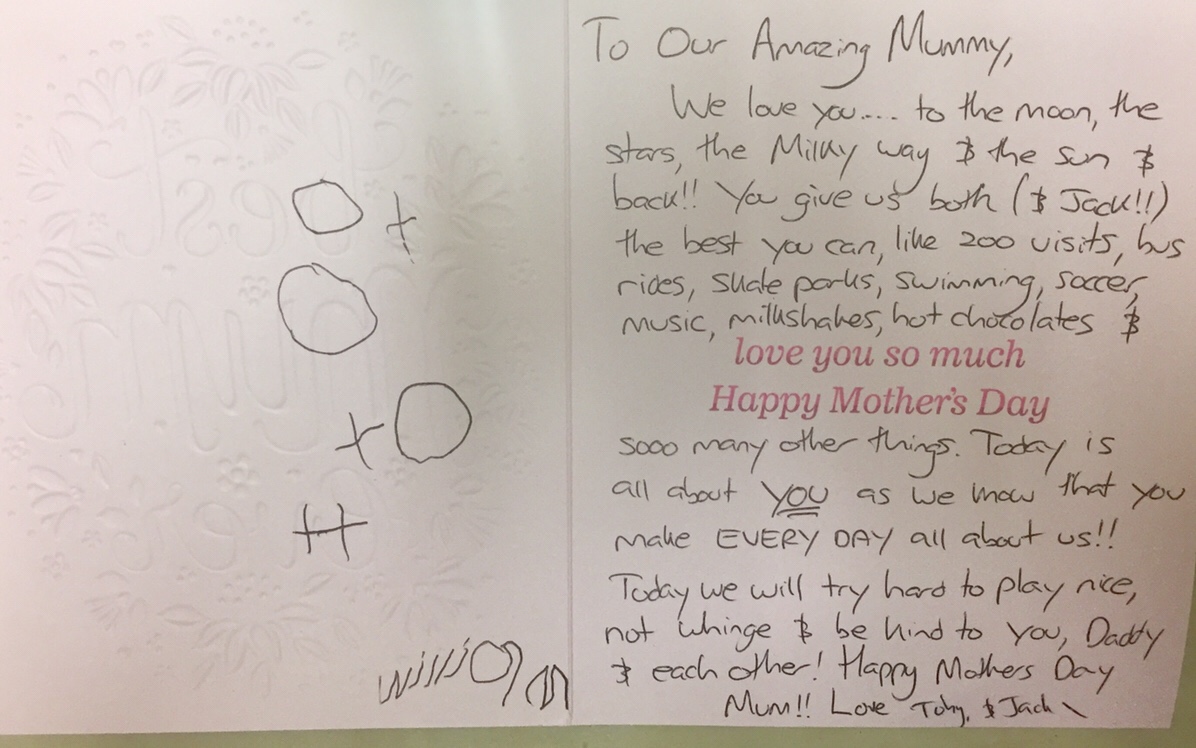 To Our Amazing Mummy,
We love you.... to the moon, the
stars, the Milky way & the sun &
back!! You give us both (& Jack!!)
the best you can, like zoo visits, bus
rides, skate parks, swimming, soccer,
music, milkshakes, hot chocolates &
love you so much
Happy Mother's Day
sooo many other things. Today is
all about YOU as we know that you
make EVERY DAY all about us!!
Today we will try hard to play nice,
not whinge & be kind to you, Daddy
& each other! Happy Mothers Day
Mum!! Love Toby, & Jack